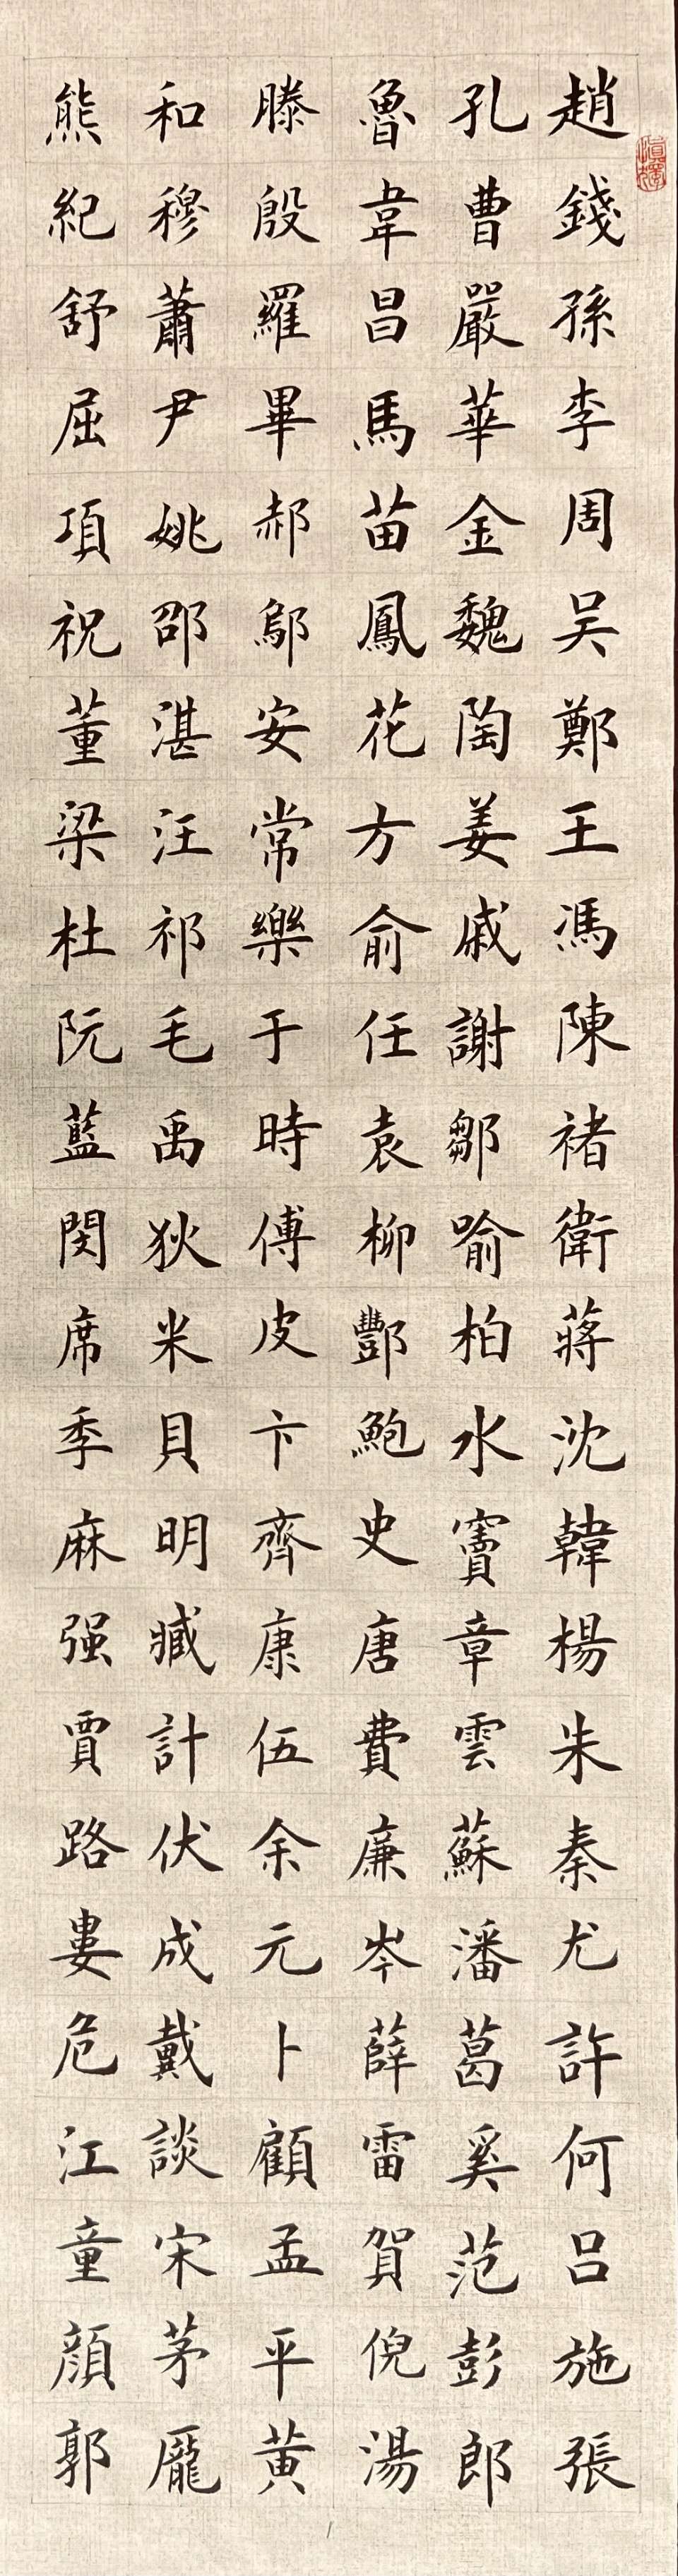 趙錢孫李周吴鄭王馮陳褚衛蔣沈韓楊朱秦尤許何吕施張
孔曹嚴華金魏陶姜戚謝鄒喻柏水竇章雲蘇潘葛奚范彭郎
魯韋昌馬苗鳳花方俞任袁柳酆鮑史唐費廉岑薛雷賀倪湯
滕殷羅畢郝鄔安常樂于時傅皮卞齊康伍余元卜顧孟平黄
和穆蕭尹姚邵湛汪祁毛禹狄米貝明臧計伏成戴談宋茅龐
熊紀舒屈項祝董梁杜阮藍閔席季麻强賈路婁危江童顔郭